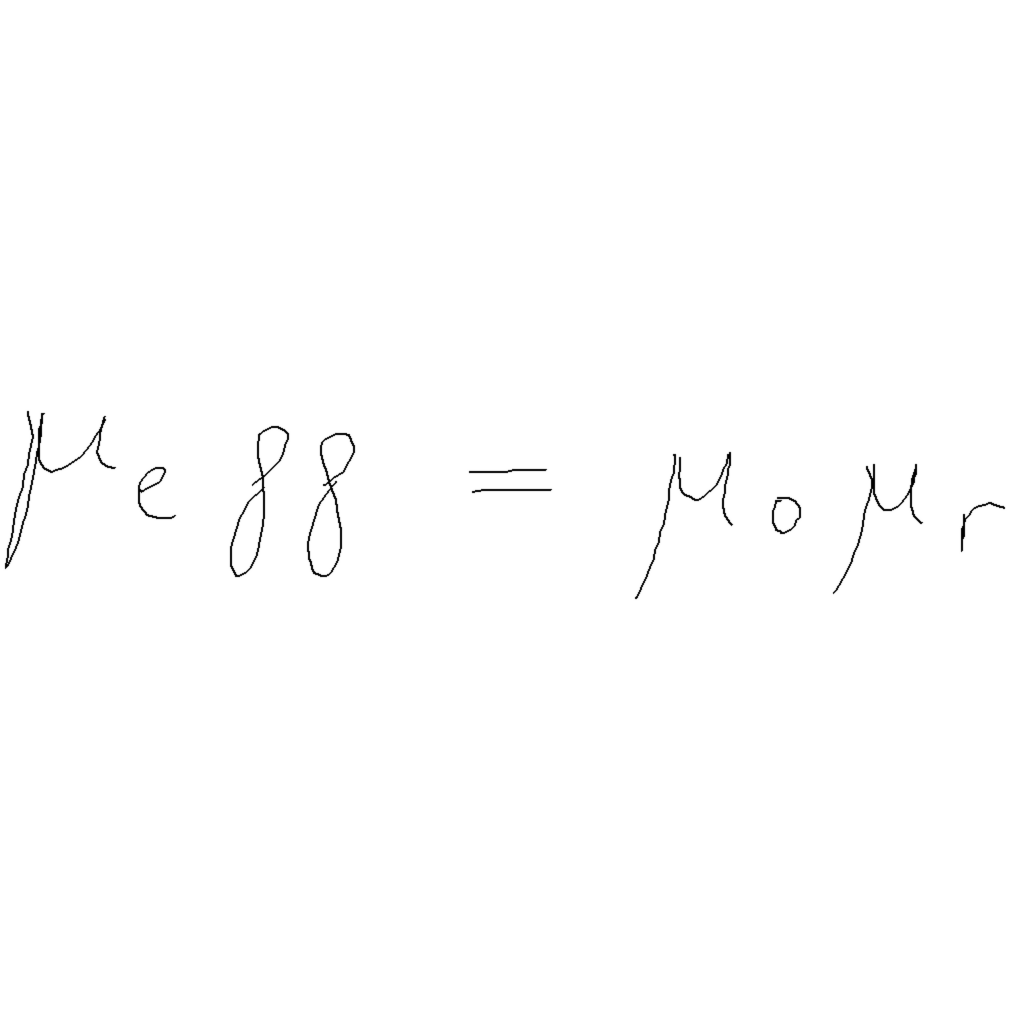 μ_{eff} = μ_0 μ_r